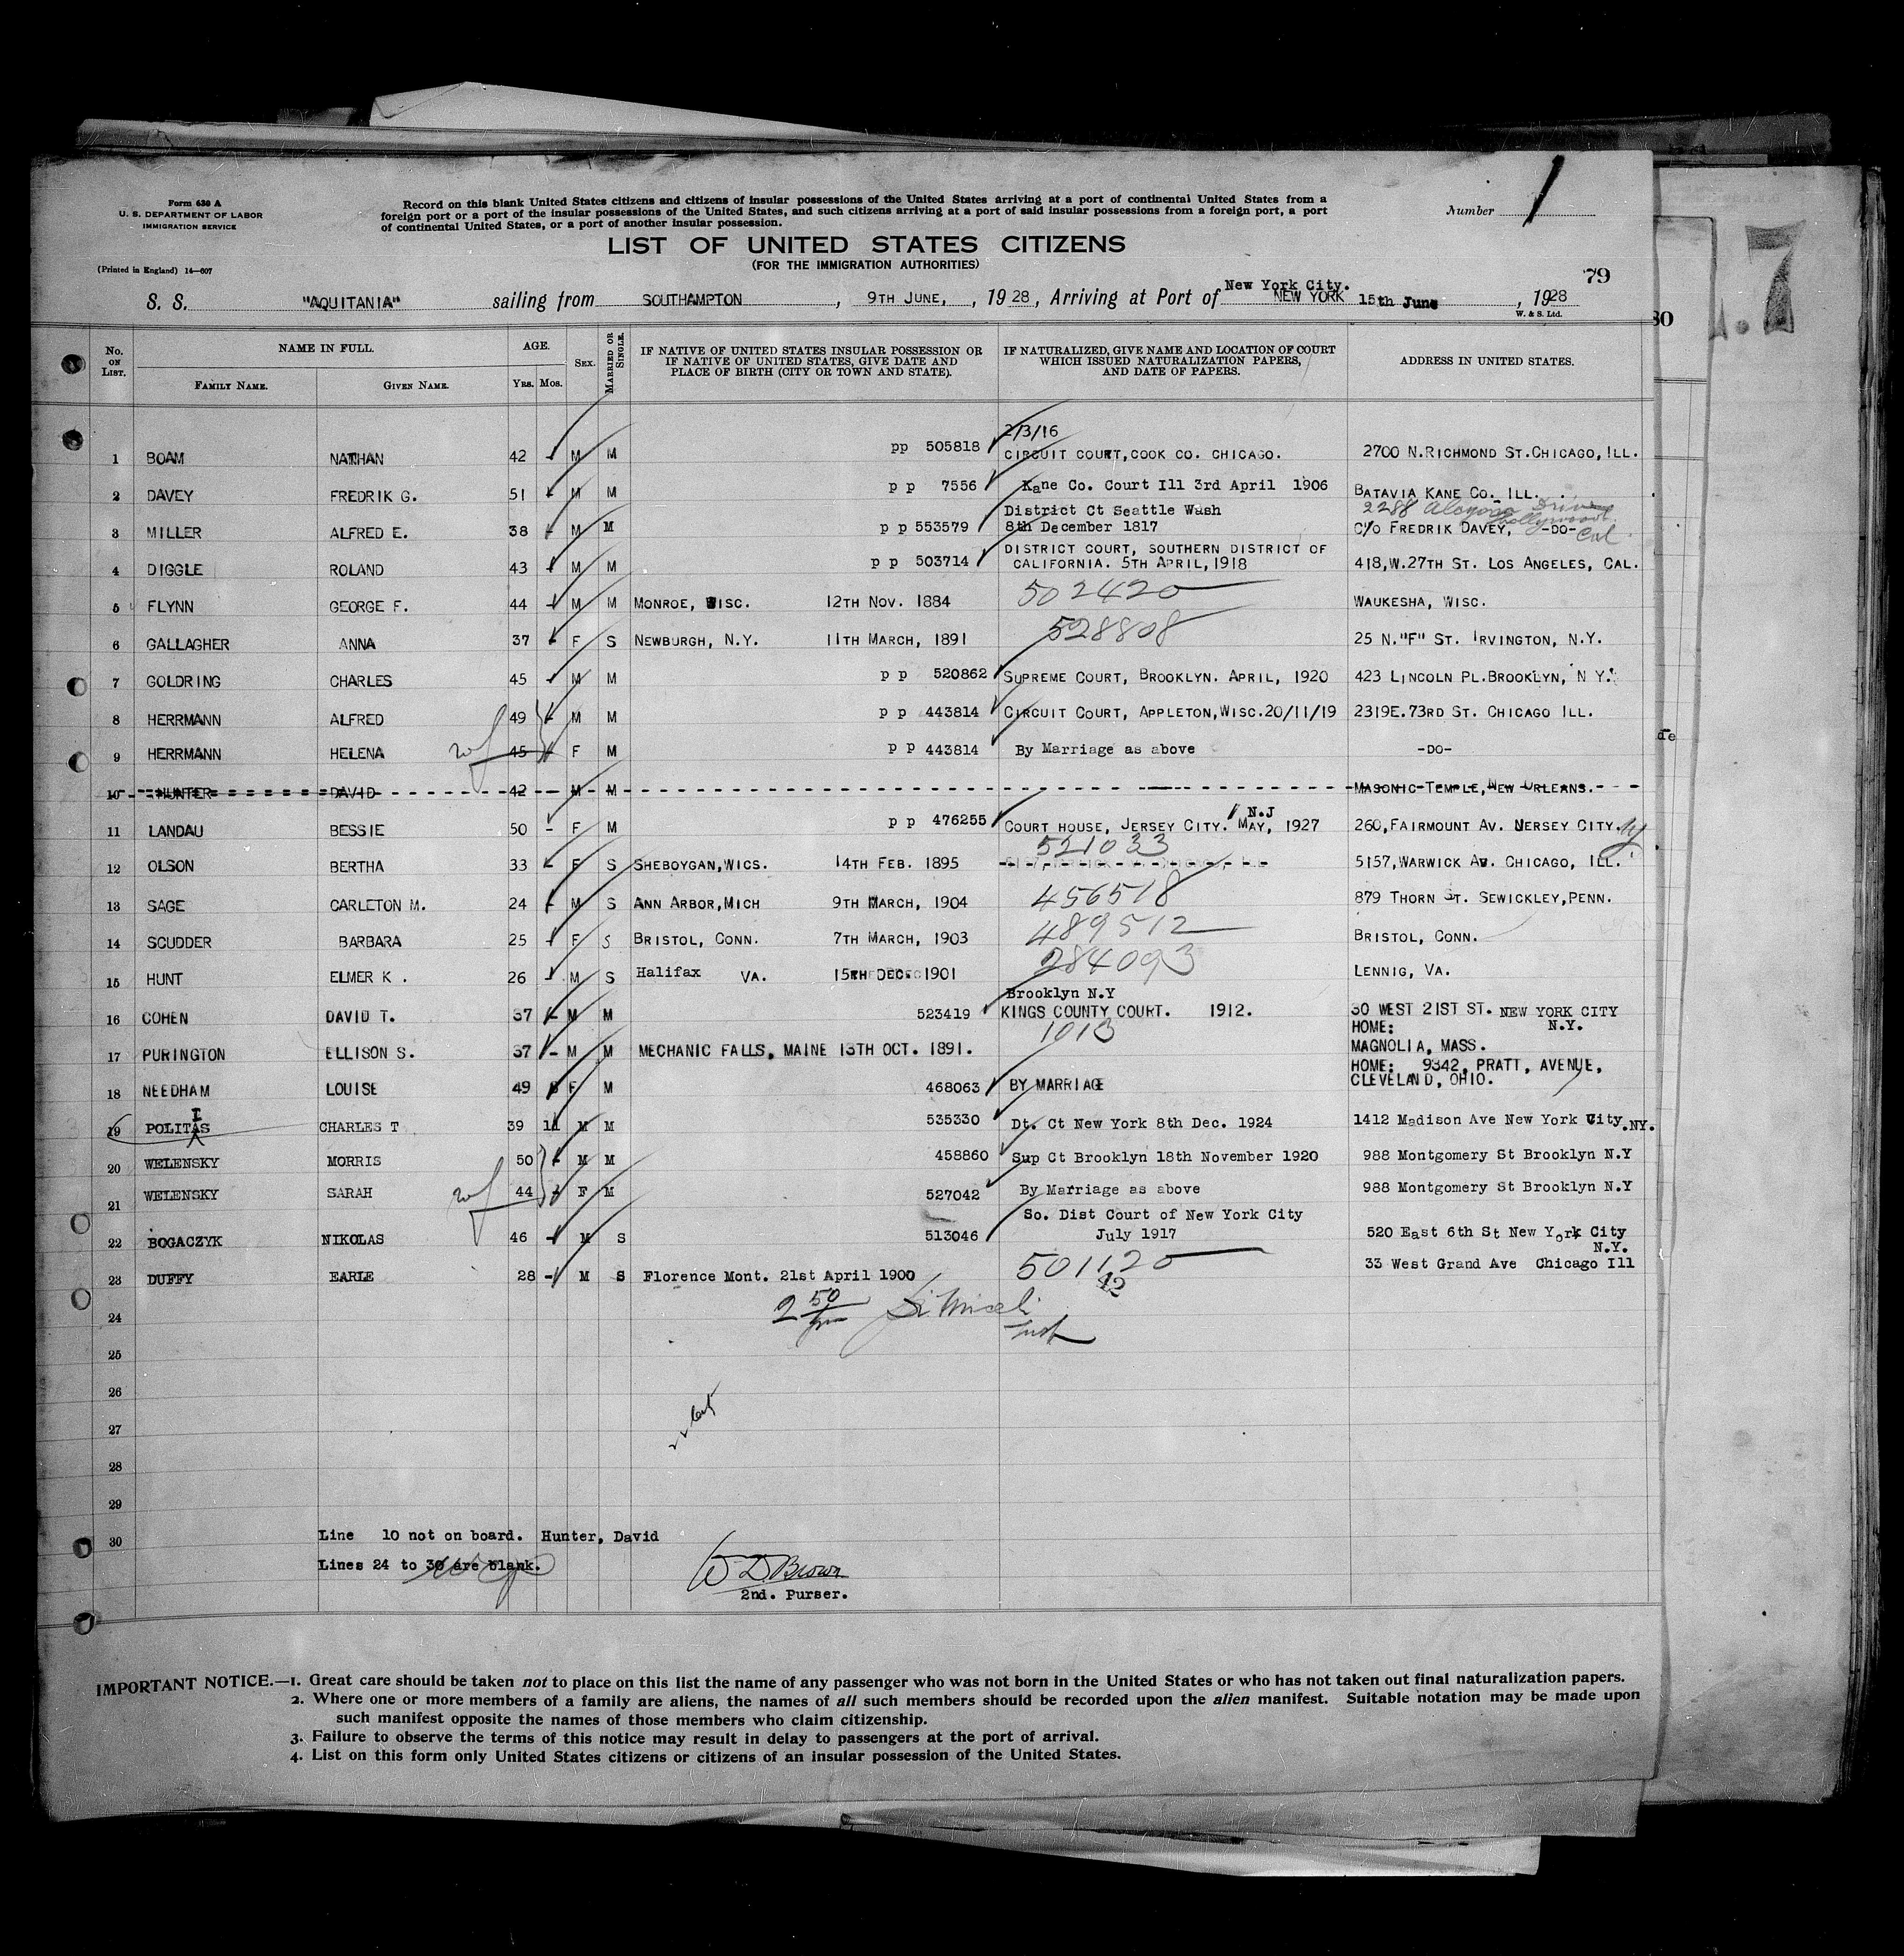 Form 630 A
U. S. DEPARTMENT OF LABOR
IMMIGRATION SERVICE
Record on this blank United States citizens and citizens of insular possessions of the United States arriving at a port of continental United States from a
foreign port or a port of the insular possessions of the United States, and such citizens arriving at a port of said insular possessions from a foreign port, a port
of continental United States, or a port of another insular possession.
Number 1
LIST OF UNITED STATES CITIZENS
(FOR THE IMMIGRATION AUTHORITIES)
(Printed in England) 14—607
79
S. S. "AQUITANIA" sailing from SOUTHAMPTON, 9TH JUNE, 1928, Arriving at Port of New York City. NEW YORK 15th June, 1928
W. & S. Ltd.
80
1.7
No. ON LIST. NAME IN FULL. AGE. SEX. MARRIED OR SINGLE. IF NATIVE OF UNITED STATES INSULAR POSSESSION OR IF NATIVE OF UNITED STATES, GIVE DATE AND PLACE OF BIRTH (CITY OR TOWN AND STATE). IF NATURALIZED, GIVE NAME AND LOCATION OF COURT WHICH ISSUED NATURALIZATION PAPERS, AND DATE OF PAPERS. ADDRESS IN UNITED STATES.
FAMILY NAME. GIVEN NAME. YRS. MOS.
2/3/16
1 BOAM NATHAN 42 - M M pp 505818 CIRCUIT COURT, COOK CO. CHICAGO. 2700 N.RICHMOND ST.CHICAGO, ILL.
2 DAVEY FREDRIK G. 51 - M M p p 7556 Kane Co. Court Ill 3rd April 1906 BATAVIA KANE CO. ILL.
District Ct Seattle Wash 2288 Alcyona Drive Hollywood
3 MILLER ALFRED E. 38 - M M p p 553579 8th December 1817 C/O FREDRIK DAVEY, -DO- Cal.
DISTRICT COURT, SOUTHERN DISTRICT OF
4 DIGGLE ROLAND 43 - M M p p 503714 CALIFORNIA. 5TH APRIL, 1918 418,W.27TH ST. LOS ANGELES, CAL.
5 FLYNN GEORGE F. 44 - M M MONROE, WISC. 12TH NOV. 1884 502420 WAUKESHA, WISC.
6 GALLAGHER ANNA 37 - F S NEWBURGH, N.Y. 11TH MARCH, 1891 528808 25 N."F" ST. IRVINGTON, N.Y.
7 GOLDRING CHARLES 45 - M M p p 520862 SUPREME COURT, BROOKLYN. APRIL, 1920 423 LINCOLN PL.BROOKLYN, N Y.
8 HERRMANN ALFRED 49 - M M p p 443814 CIRCUIT COURT, APPLETON,WISC.20/11/19 2319E.73RD ST. CHICAGO ILL.
9 HERRMANN HELENA wf 45 - F M p p 443814 By Marriage as above -DO-
10 HUNTER DAVID 42 - M M MASONIC TEMPLE, NEW ORLEANS.
N.J
11 LANDAU BESSIE 50 - F M p p 476255 COURT HOUSE, JERSEY CITY. MAY, 1927 260,FAIRMOUNT AV. JERSEY CITY NJ
521033
12 OLSON BERTHA 33 - F S SHEBOYGAN,WICS. 14TH FEB. 1895 5157,WARWICK AV. CHICAGO, ILL.
13 SAGE CARLETON M. 24 - M S ANN ARBOR,MICH 9TH MARCH, 1904 456518 879 THORN ST. SEWICKLEY,PENN.
14 SCUDDER BARBARA 25 - F S BRISTOL, CONN. 7TH MARCH, 1903 489512 BRISTOL, CONN.
15 HUNT ELMER K . 26 - M S Halifax VA. 15TH DEC 1901 284093 LENNIG, VA.
Brooklyn N.Y
16 COHEN DAVID T. 37 - M M 523419 KINGS COUNTY COURT. 1912. 30 WEST 21ST ST. NEW YORK CITY
1013 HOME: N.Y.
17 PURINGTON ELLISON S. 37 - M M MECHANIC FALLS, MAINE 13TH OCT. 1891. MAGNOLIA, MASS.
HOME: 9342, PRATT, AVENUE,
18 NEEDHAM LOUISE 49 8 F M 468063 BY MARRIAGE CLEVELAND, OHIO.
I
19 POLITAS CHARLES T 39 11 M M 535330 Dt. Ct New York 8th Dec. 1924 1412 Madison Ave New York City.NY.
20 WELENSKY MORRIS 50 - M M 458860 Sup Ct Brooklyn 18th November 1920 988 Montgomery St Brooklyn N.Y
21 WELENSKY SARAH wf 44 - F M 527042 By Marriage as above 988 Montgomery St Brooklyn N.Y
So. Dist Court of New York City
22 BOGACZYK NIKOLAS 46 - M S 513046 July 1917 520 East 6th St New York City
N.Y.
23 DUFFY EARLE 28 - M S Florence Mont. 21st April 1900 501120 33 West Grand Ave Chicago Ill
12
2 50
24
25
26
27
28
29
30
Line 10 not on board. Hunter, David
Lines 24 to 30 are blank.
W D Brown
2nd. Purser.
IMPORTANT NOTICE.—1. Great care should be taken not to place on this list the name of any passenger who was not born in the United States or who has not taken out final naturalization papers.
2. Where one or more members of a family are aliens, the names of all such members should be recorded upon the alien manifest. Suitable notation may be made upon
such manifest opposite the names of those members who claim citizenship.
3. Failure to observe the terms of this notice may result in delay to passengers at the port of arrival.
4. List on this form only United States citizens or citizens of an insular possession of the United States.